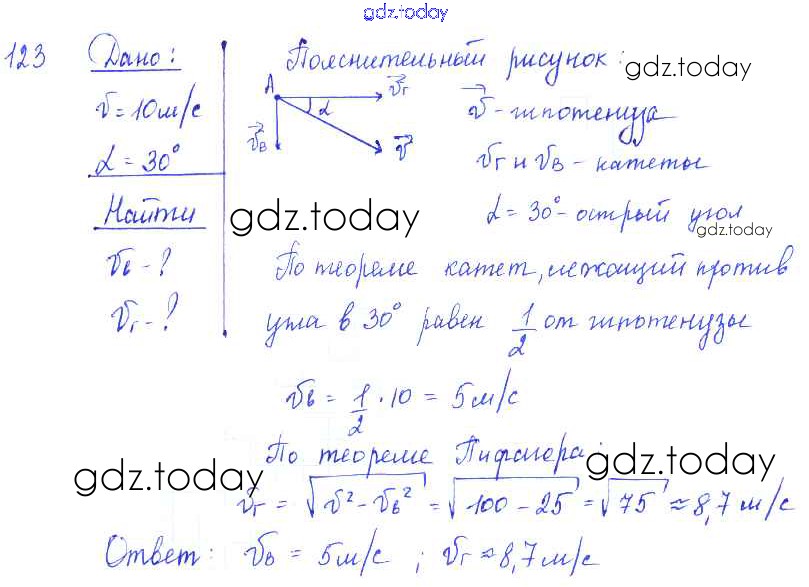 gdz.today
123 Дано: Пояснительный рисунок:
gdz.today
v = 10 м/с
A v⃗г α v⃗в v⃗
v⃗ - гипотенуза
α = 30°
vг и vв - катеты
Найти
gdz.today
α = 30° - острый угол
gdz.today
vв - ?
По теореме катет, лежащий против
vг - ?
угла в 30° равен 1/2 от гипотенузы
vв = 1/2 · 10 = 5 м/с
По теореме Пифагора:
gdz.today
gdz.today
vг = √v² - vв² = √100 - 25 = √75 ≈ 8,7 м/с
Ответ: vв = 5 м/с ; vг ≈ 8,7 м/с